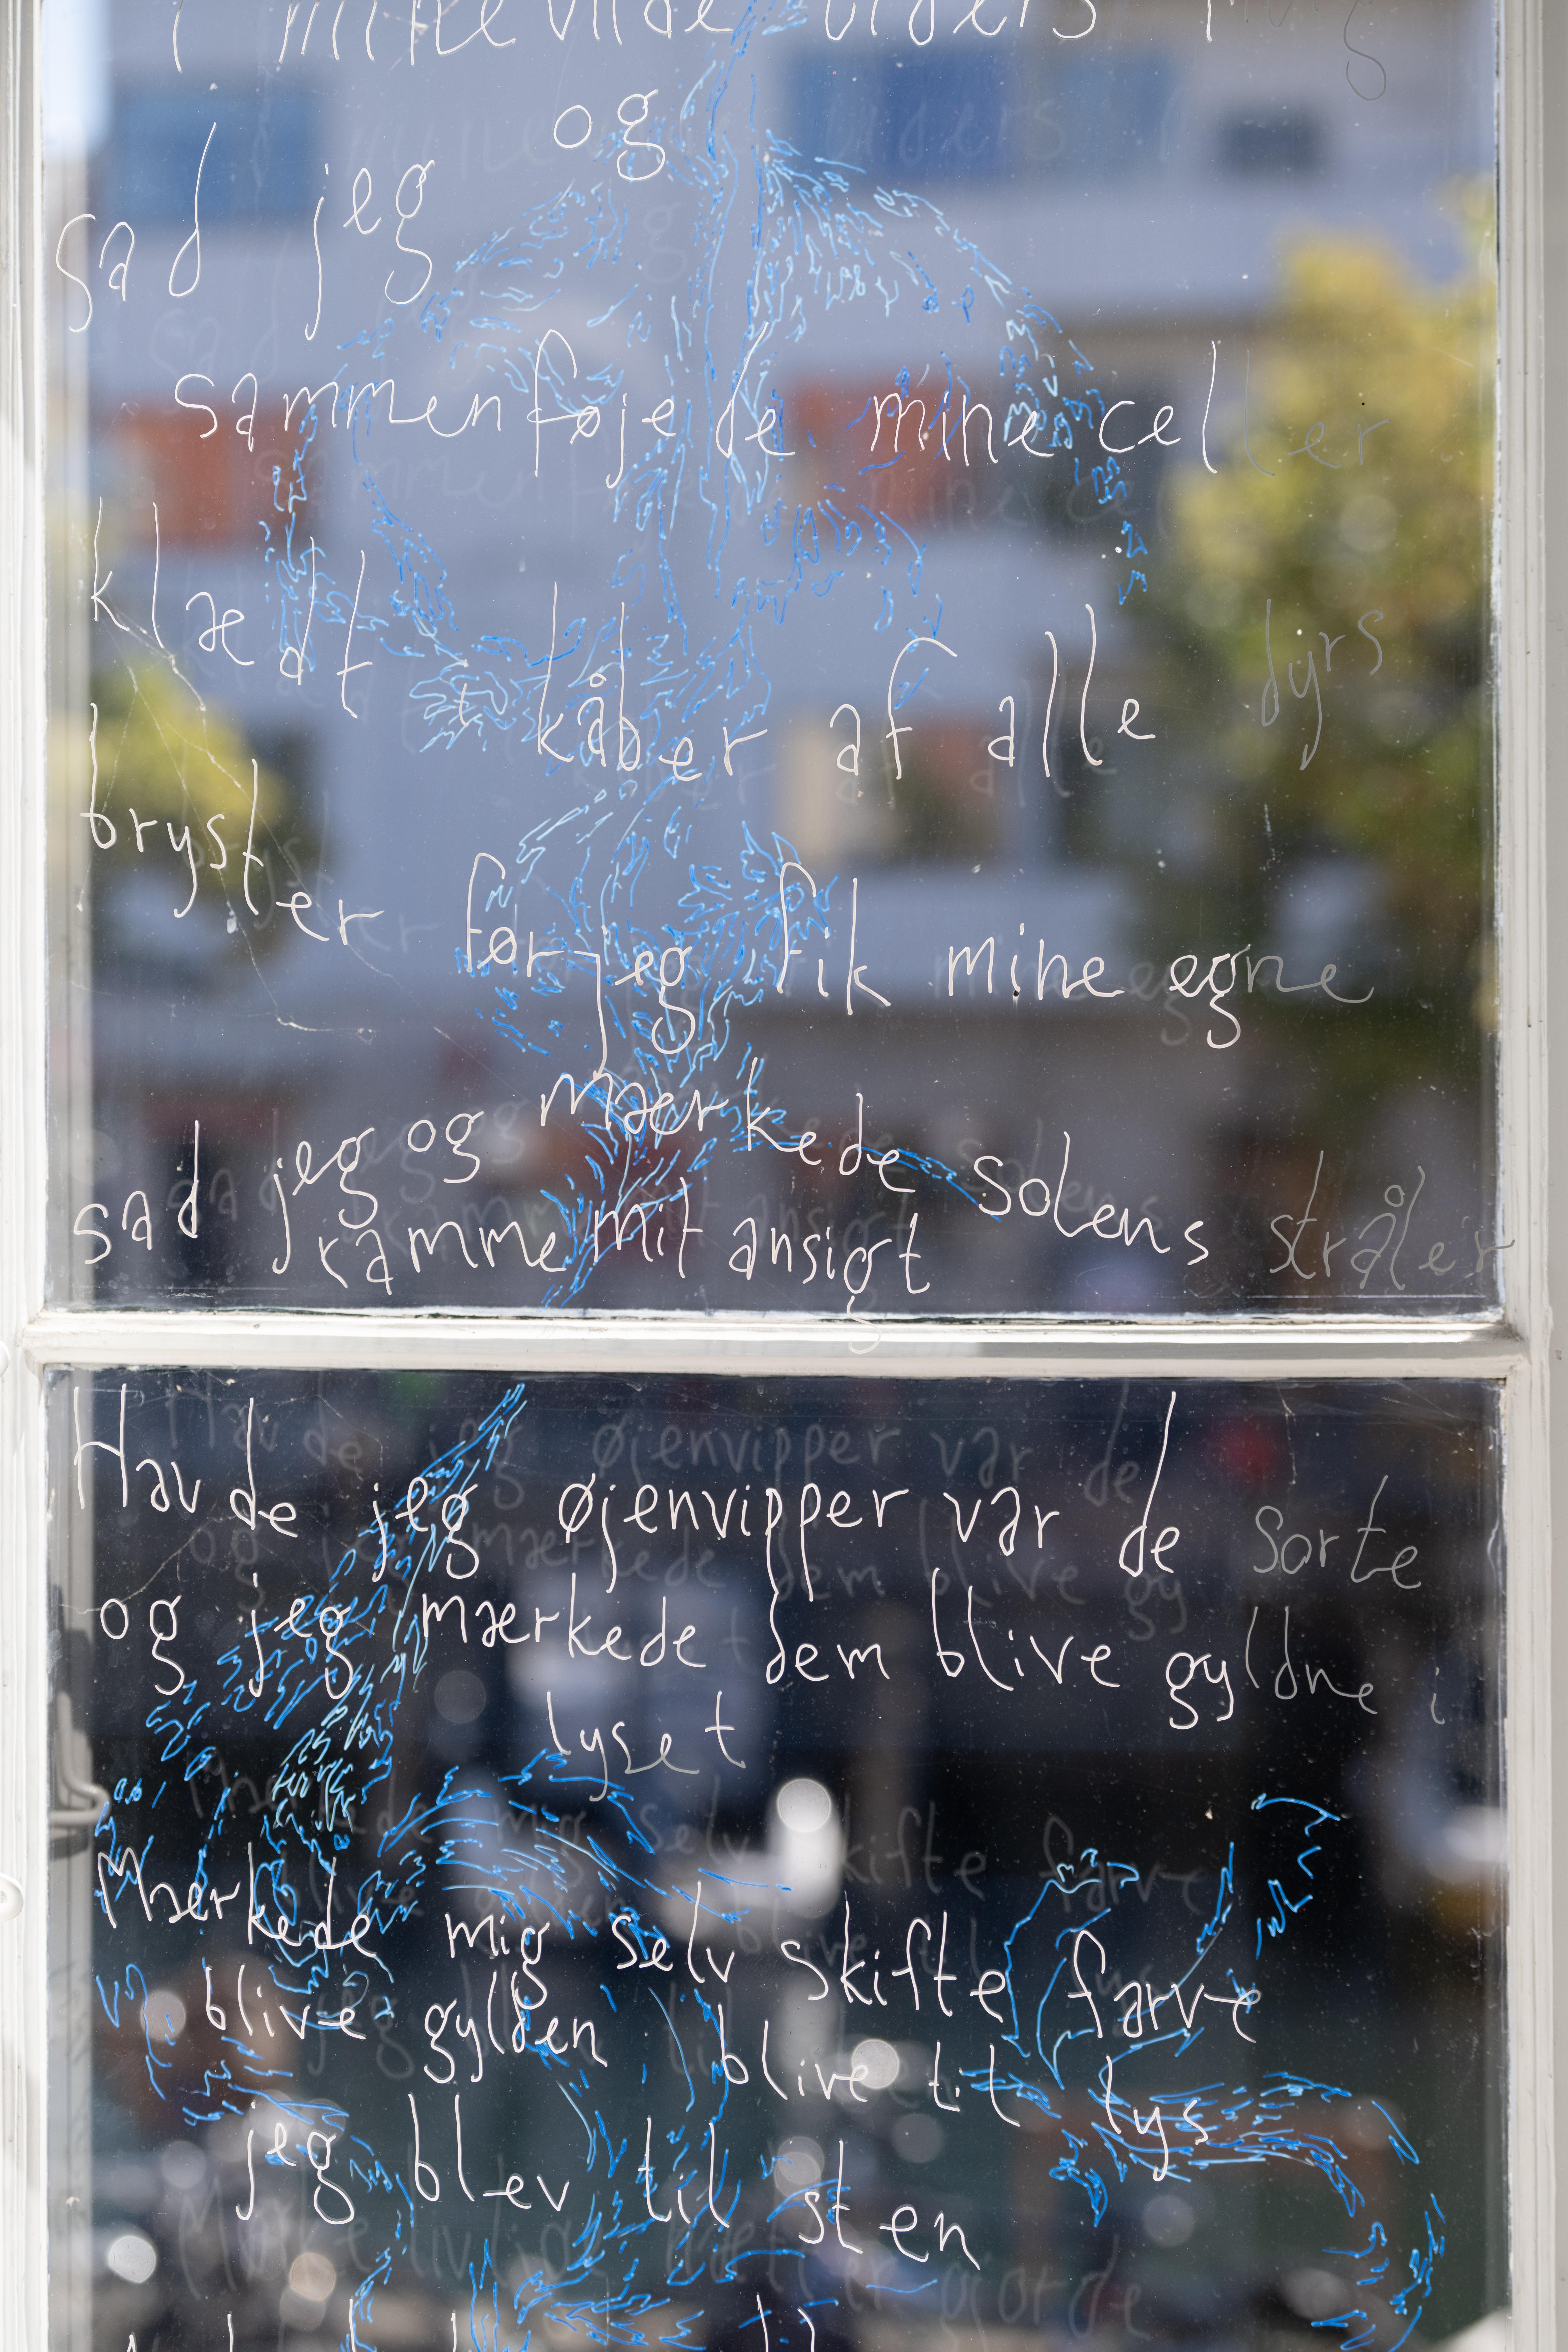 i mine vilde
og
sad jeg
sammenføjede mine celler
klædt t kåber af alle dyrs
bryster før jeg fik mine egne
sad jeg og mærkede solens stråler
ramme mit ansigt
Havde jeg øjenvipper var de sorte
og jeg mærkede dem blive gyldne i
lyset
Mærkede mig selv skifte farve
blive gylden blive til lys
jeg blev til sten